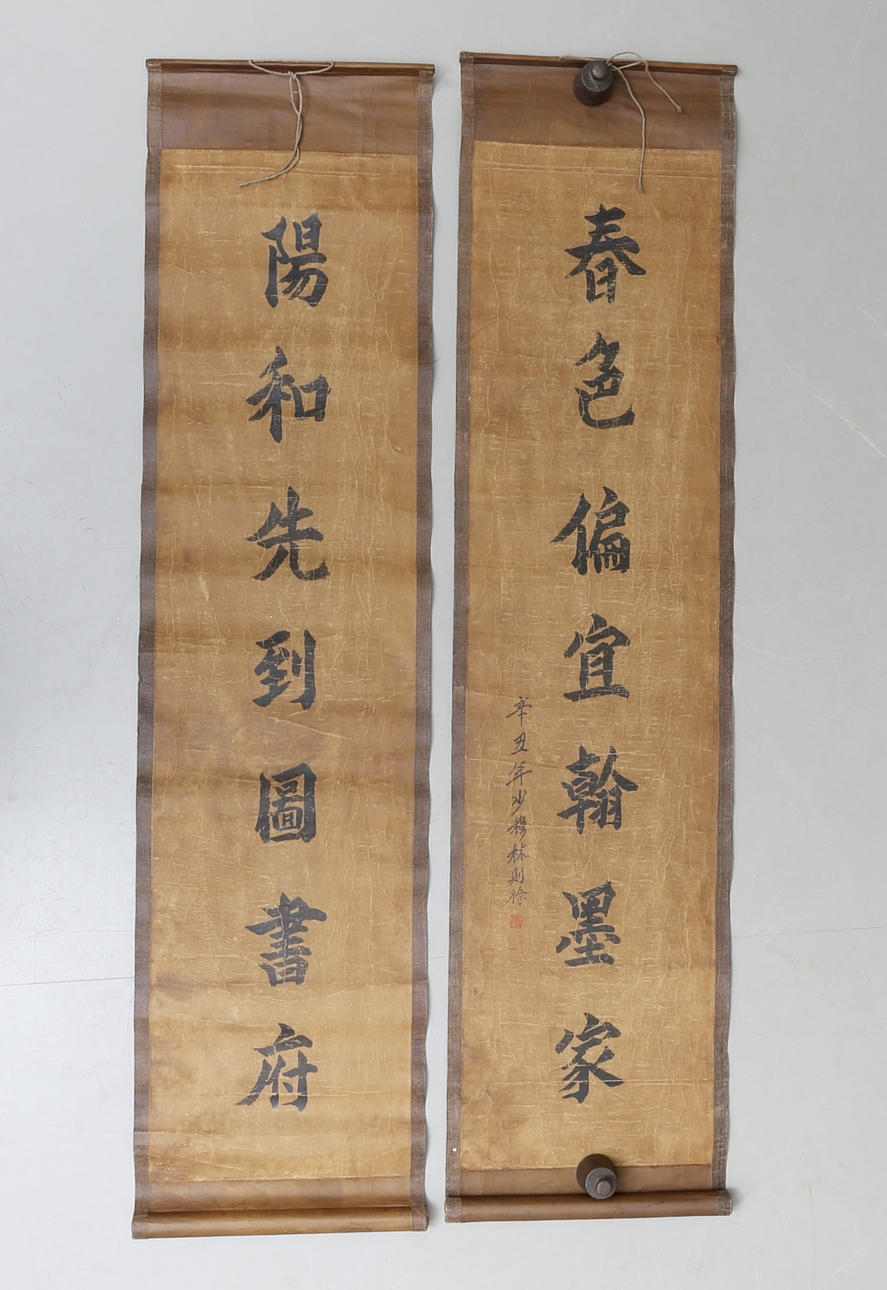 春色偏宜翰墨家
辛丑年少穆林則徐
陽和先到圖書府